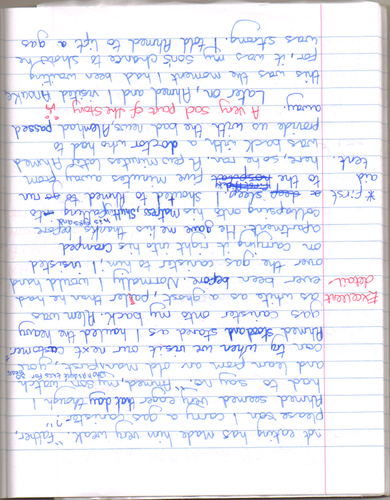 not eating has made him very weak. "Father,
please can I carry a gas canister?"
Ahmed seemed very eager that day though I
had to say no. "No, Ahmed, my son, watch
and learn from an old man first. you
can try when we visit our next customer".
Ahmed stood and stared as I hauled the heavy
gas canister onto my back. Alem was
Excellent detail
as white as a ghost, paler than he had
ever been before. Normally I would hand
over the gas canister to him; I insisted
on carrying it right into his cramped
apartment. He gave me his thanks before
collapsing onto his
a deep sleep. I shouted to Ahmed to run
* First
to the hospital five minutes away from
tent.
here, so he ran. A few minutes later Ahmed
was back with a doctor who had to
provide us with the bad news, Alem had passed
away. A very sad part of the story
Later on, Ahmed and I visited
this was the moment I had been waiting
for, it was my son's chance to show he
was strong. I told Ahmed to lift a gas